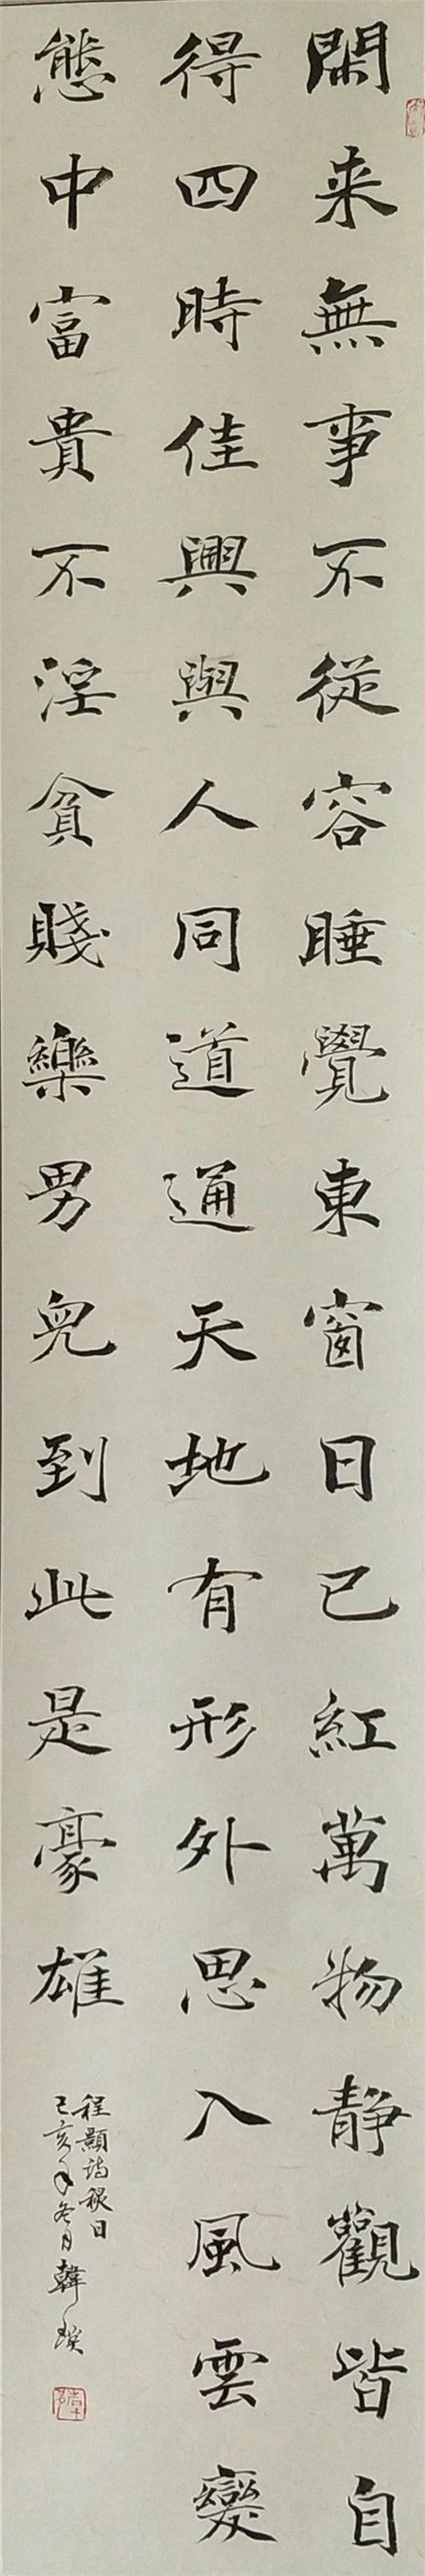 閑来無事不從容睡覺東窗日已紅萬物静觀皆自
得四時佳興與人同道通天地有形外思入風雲變
態中富貴不淫貧賤樂男兒到此是豪雄
程顥詩秋日
己亥年冬月韓